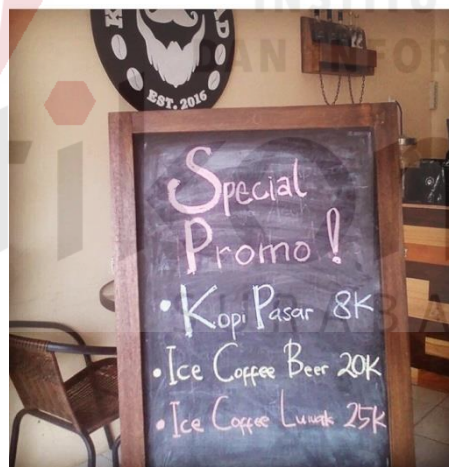 EST. 2016
Special
Promo!
• Kopi Pasar 8K
• Ice Coffee Beer 20K
• Ice Coffee Luwak 25K